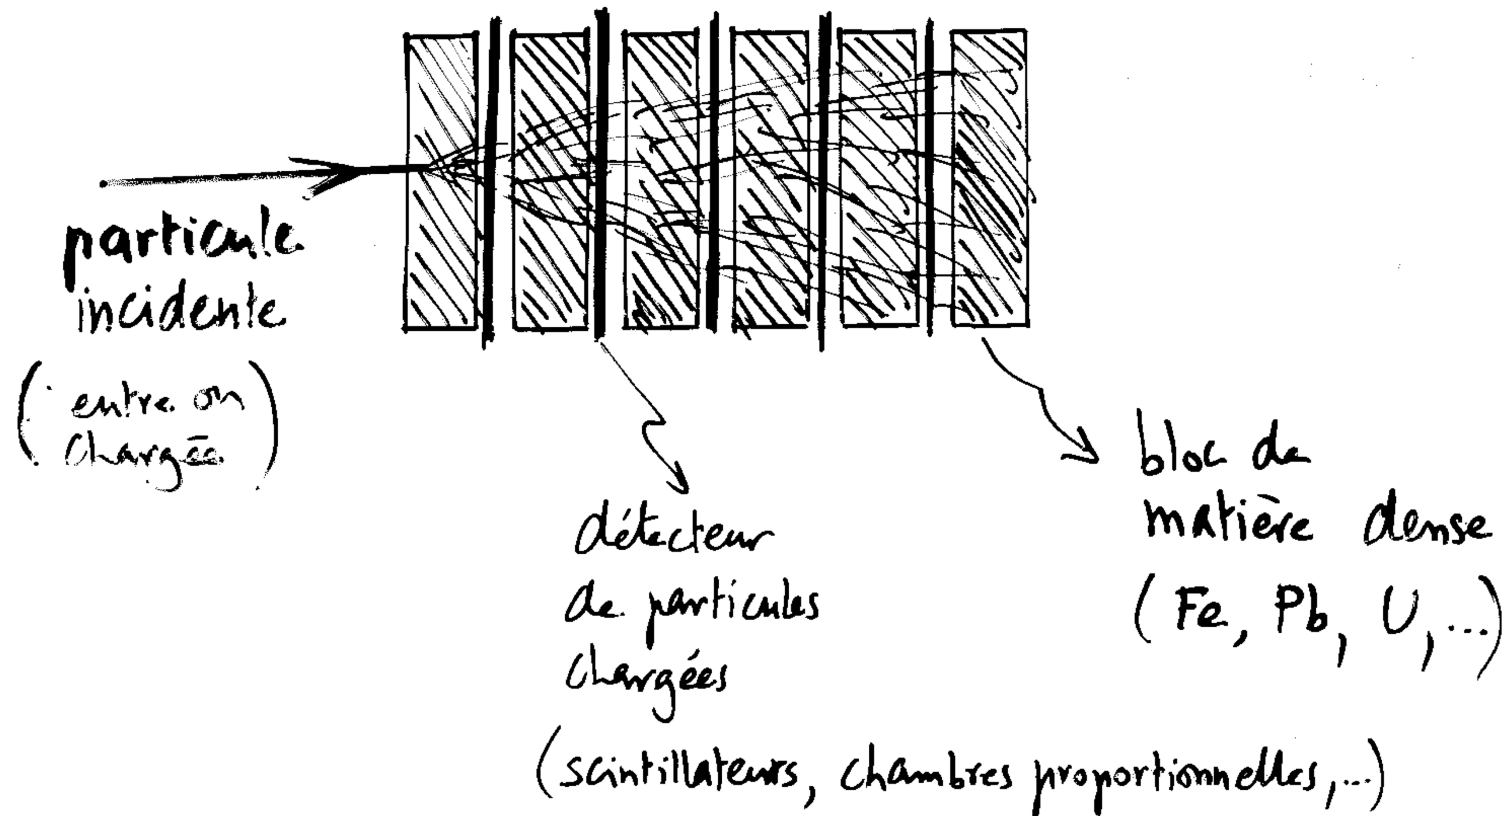 particule
incidente
(entre on
chargée)
détecteur
de particules
chargées
(scintillateurs, chambres proportionnelles,...)
bloc de
matière dense
(Fe, Pb, U,...)